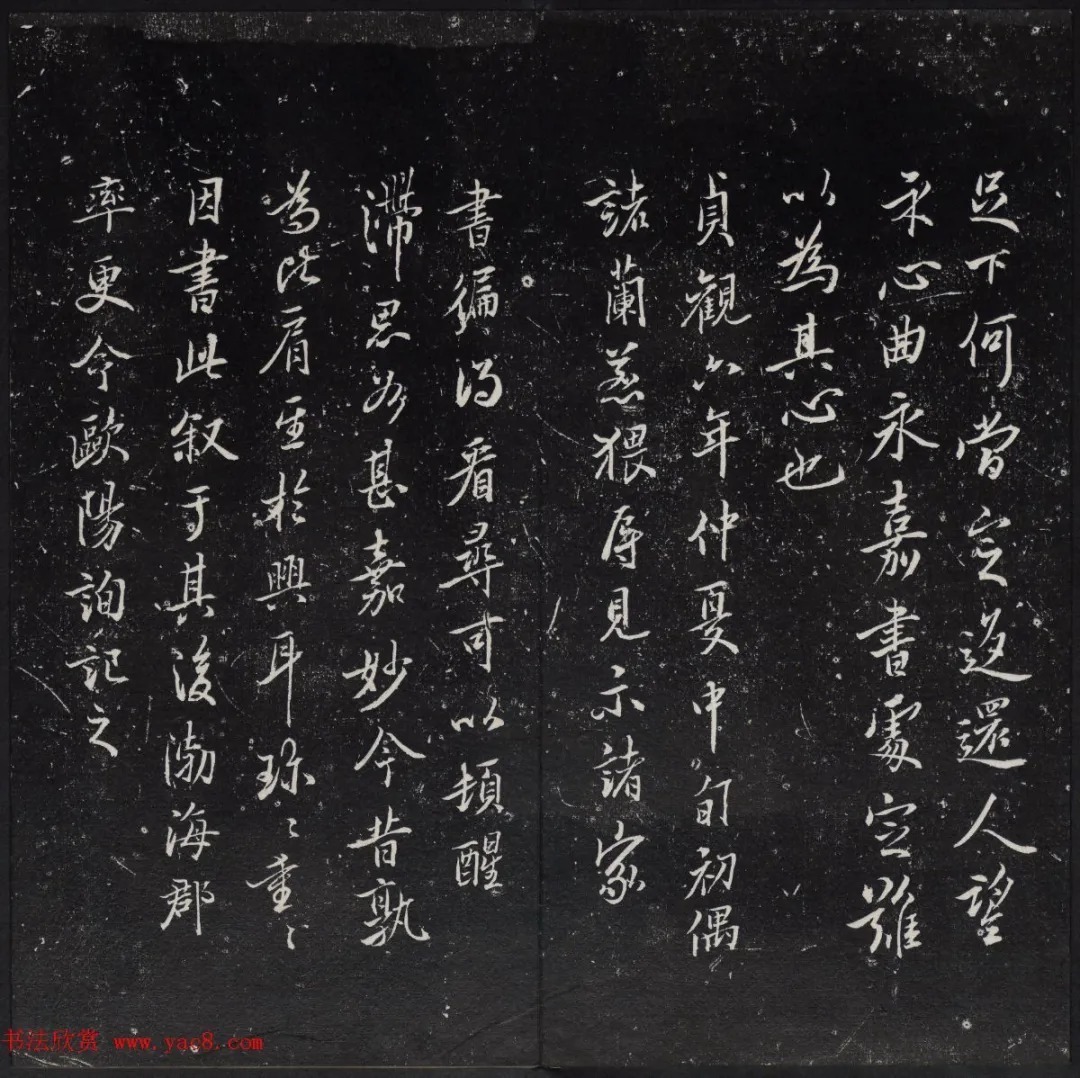 足下何當定還人望
永心曲永嘉書處定難
以為其心也
貞觀六年仲夏中旬初偶
諸蘭若猥辱見示諸家
書徧得看尋可以頓醒
滯思甚嘉妙今昔孰
為比肩至於興耳珍珍重重
因書此叙于其後渤海郡
率更令歐陽詢記之
书法欣赏 www.yac8.com